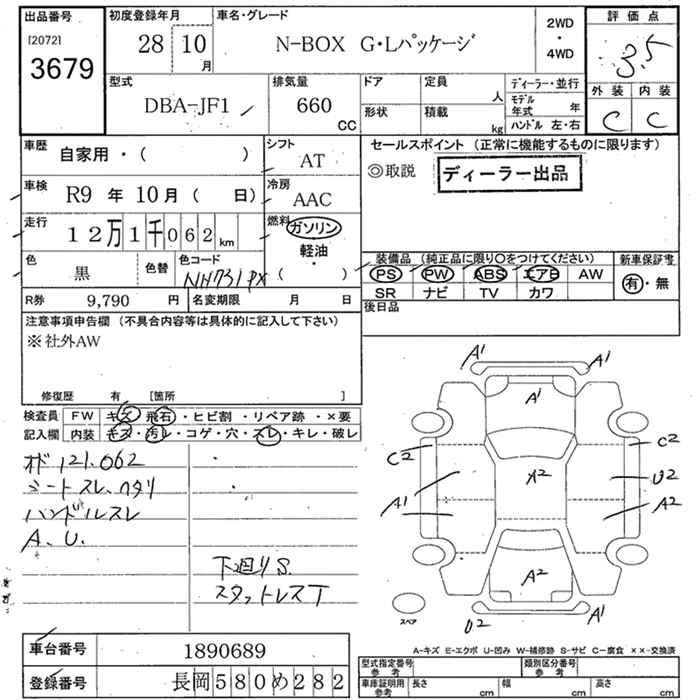 出品番号 初度登録年月 車名・グレード 2WD・4WD 評価点
[2072] 3679 28 10月 N-BOX G・Lパッケージ 3.5
型式 排気量 ドア 定員 人 ディーラー・並行 外装 内装
DBA-JF1 660 CC 形状 積載 kg モデル年式 年 C C
ハンドル 左・右
車歴 自家用・( ) シフト AT セールスポイント (正常に機能するものに限ります)
車検 R9年10月( 日) 冷房 AAC ◎取説 ディーラー出品
走行 12万1千062km 燃料 ガソリン 軽油 ( )
色 黒 色替 色コード NH731PX 装備品 (純正品に限り〇をつけてください) 新車保証書
PS PW ABS エアB AW 有・無
SR ナビ TV カワ
R券 9,790円 名変期限 月 日 後日品
注意事項申告欄 (不具合内容等は具体的に記入して下さい)
※社外AW
修復歴 有 [箇所 ]
検査員 FW キズ・飛石・ヒビ割・リペア跡・×要
記入欄 内装 キズ・汚レ・コゲ・穴・スレ・キレ・破レ
オド121.062
シートスレ、ヘタリ
ハンドルスレ
A、U.
下廻りS.
スタットレスT
A1 A1
A1
C2 C2
A2 U2
A1 A2
A2
U2 A1
スペア
A-キズ E-エクボ U-凹み W-補修跡 S-サビ C-腐食 ××-交換済
車台番号 1890689
登録番号 長岡580め282
型式指定番号 参考 類別区分番号 参考
車庫証明用 参考 長さ cm 幅 cm 高さ cm